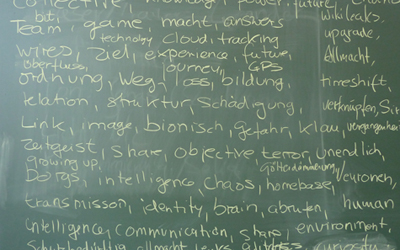 bit,
Team, game, macht, answers
wikileaks,
technology Cloud, tracking
upgrade,
wires, Ziel, experience, future,
Allmacht,
oberfluss, journey, GPS
ordnung, Weg, oss, bildung,
timeshift,
relation, struktur, Schädigung,
verknüpfen, Sit
Link, image, bionisch, gefahr, klau, vergangenhe
Zeitgeist, Share, objective terror, unendlich,
growing up, Götterdämmerung,
intelligence, Chaos, homebase,
transmisson, identity, brain, abrufen, human
intelligence, communication, stars, environment,